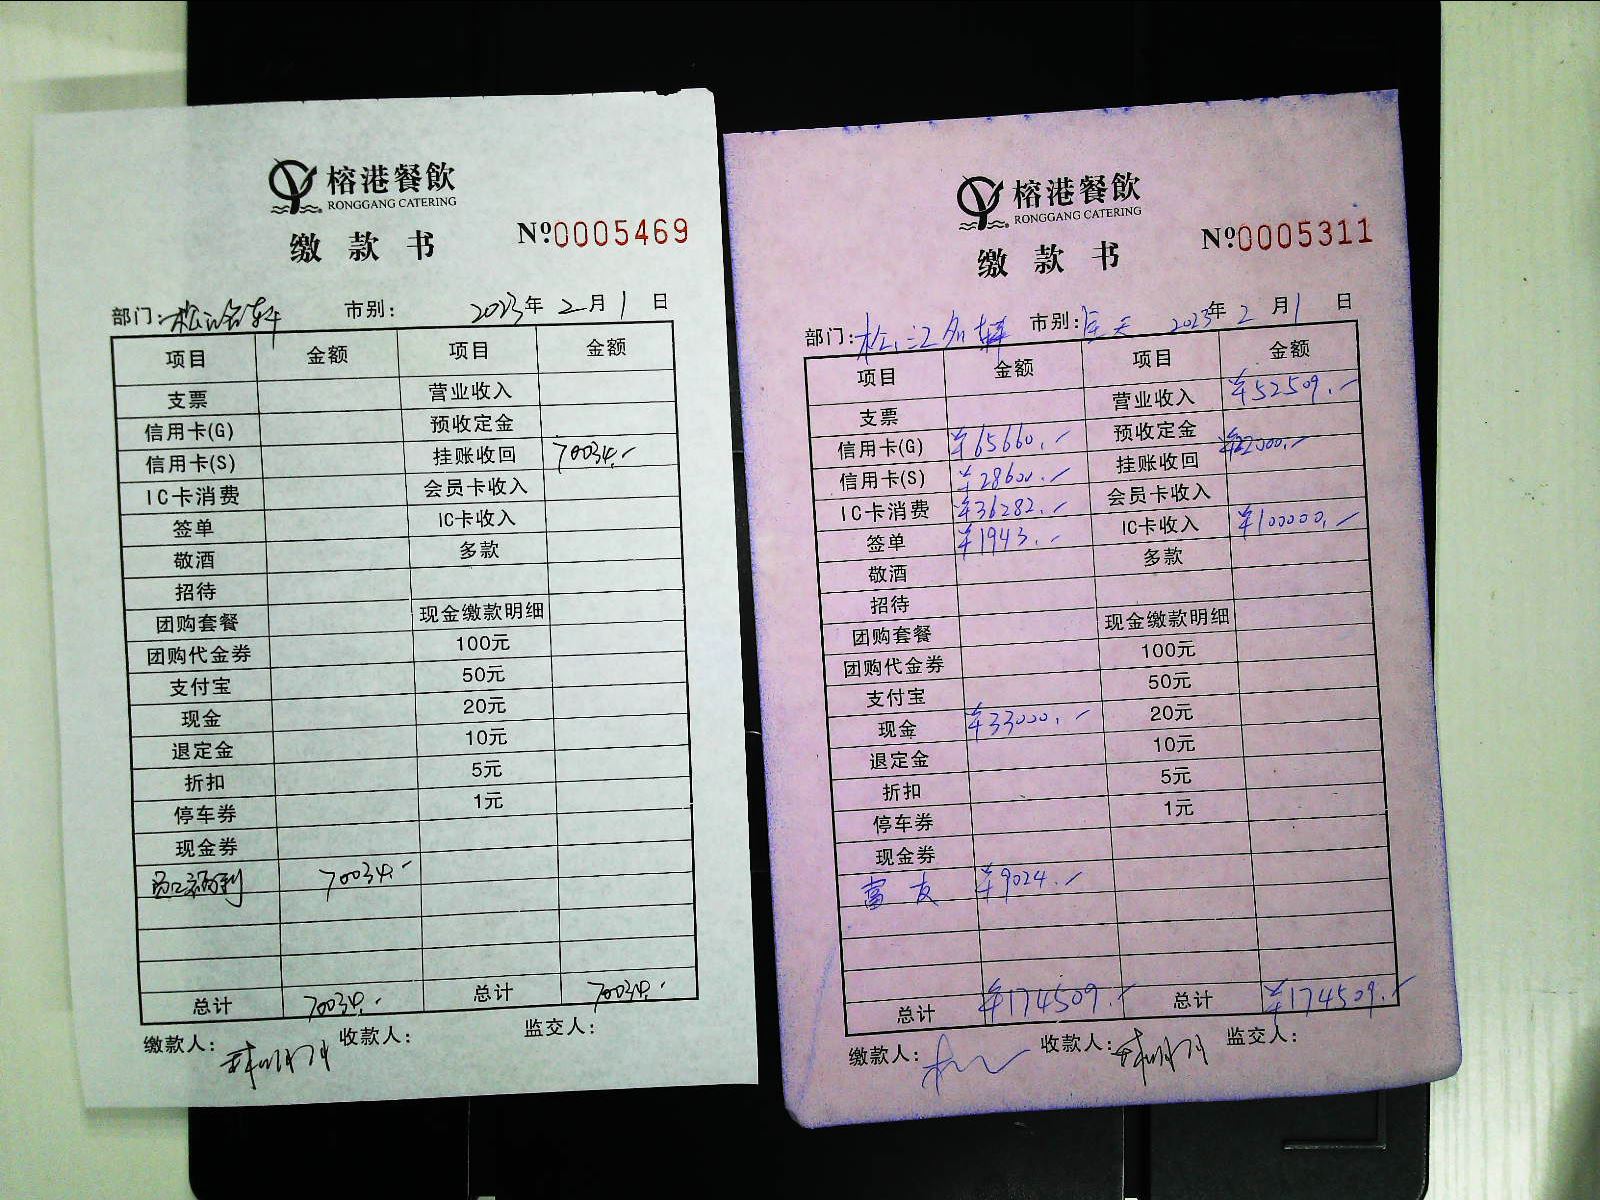 榕港餐飲
RONGGANG CATERING
缴款书
Nº0005469
部门: 市别: 2023年 2月 1日
项目 金额 项目 金额
支票 营业收入
信用卡(G) 预收定金
信用卡(S) 挂账收回 70034.-
IC卡消费 会员卡收入
签单 IC卡收入
敬酒 多款
招待
团购套餐 现金缴款明细
团购代金券 100元
支付宝 50元
现金 20元
退定金 10元
折扣 5元
停车券 1元
现金券
70034.-
总计 70034.- 总计 70034.-
缴款人: 收款人: 监交人:
榕港餐飲
RONGGANG CATERING
缴款书
Nº0005311
部门: 松江名轩 市别: 全天 2023年 2月 1日
项目 金额 项目 金额
支票 营业收入 ¥52509.-
信用卡(G) ¥65660.- 预收定金 ¥22000.-
信用卡(S) ¥28600.- 挂账收回
IC卡消费 ¥36282.- 会员卡收入
签单 ¥1943.- IC卡收入 ¥100000.-
敬酒 多款
招待
团购套餐 现金缴款明细
团购代金券 100元
支付宝 50元
现金 ¥33000.- 20元
退定金 10元
折扣 5元
停车券 1元
现金券
富友 ¥9024.-
总计 ¥174509.- 总计 ¥174509.-
缴款人: 收款人: 监交人: